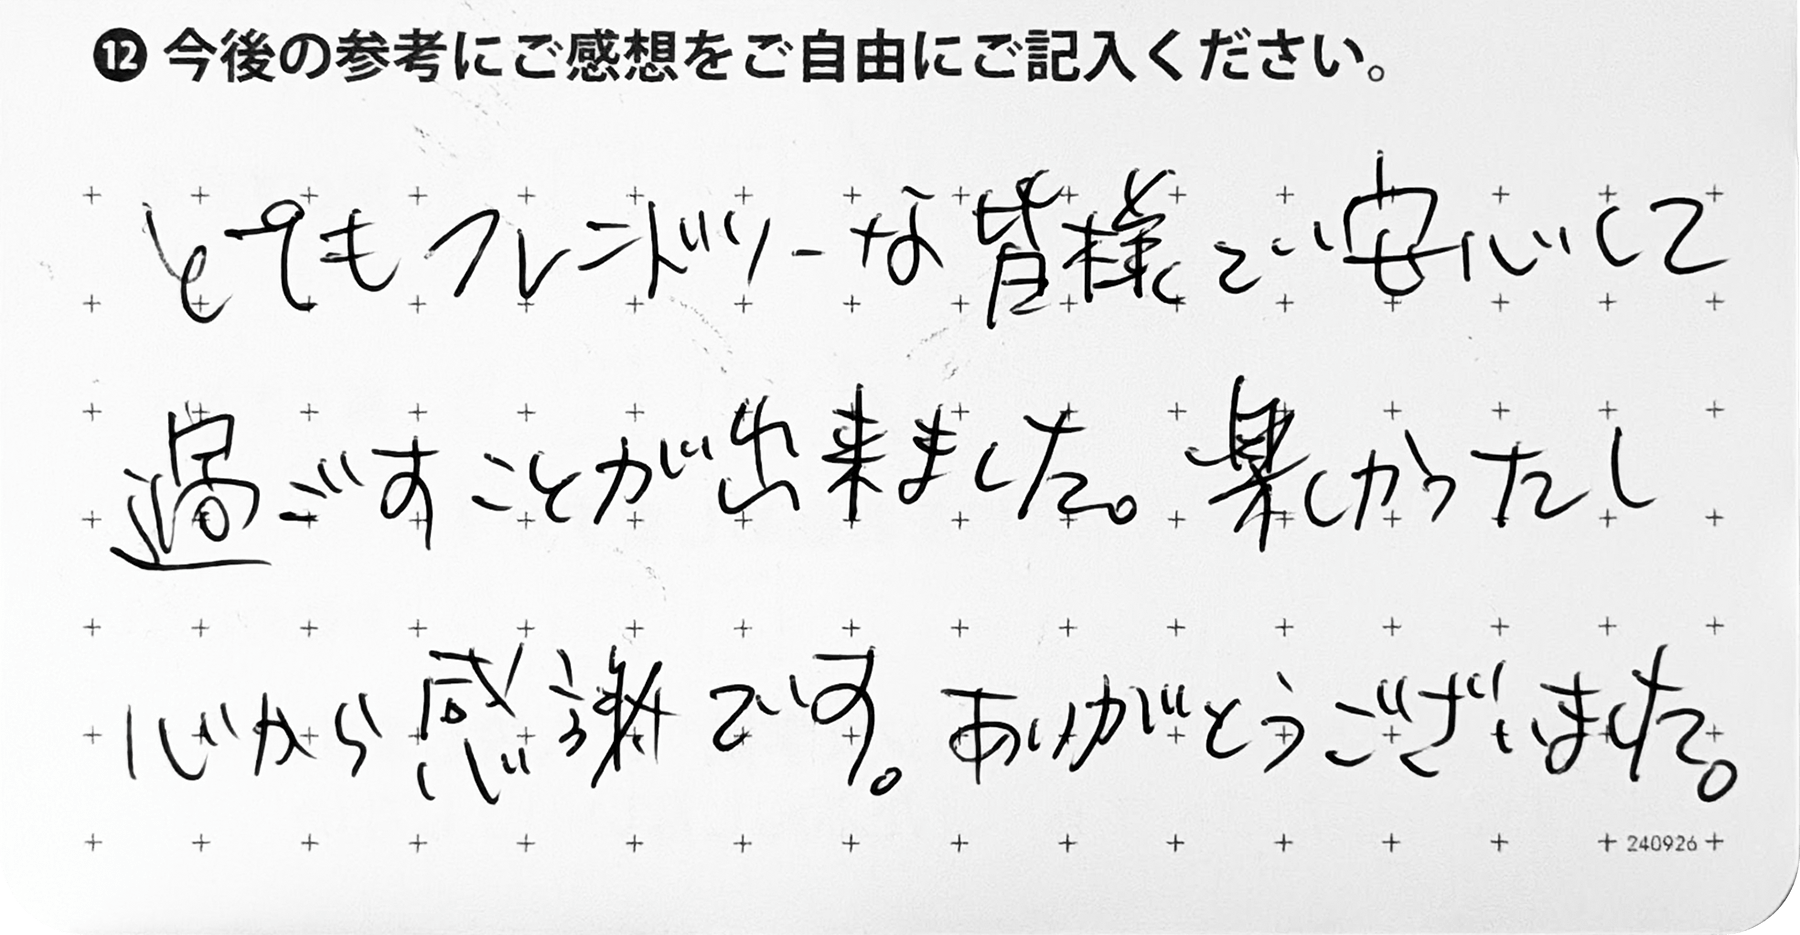 ⓬ 今後の参考にご感想をご自由にご記入ください。
とてもフレンドリーな皆様で安心して
過ごすことが出来ました。楽しかったし
心から感謝です。ありがとうございました。
240926